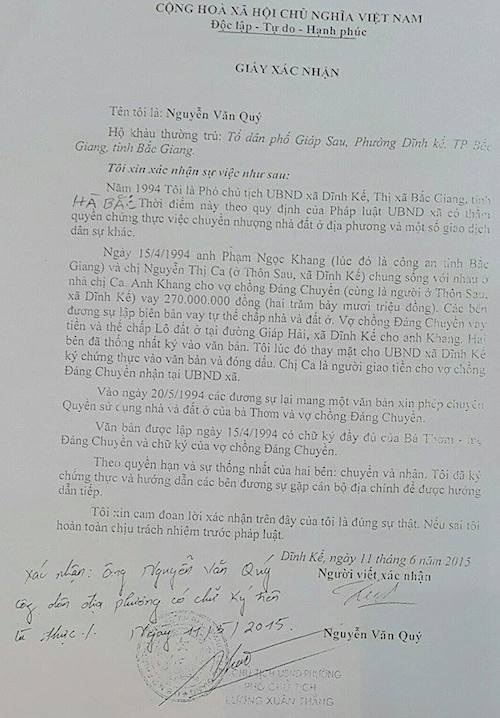 CỘNG HOÀ XÃ HỘI CHỦ NGHĨA VIỆT NAM
Độc lập - Tự do - Hạnh phúc
GIẤY XÁC NHẬN
Tên tôi là: Nguyễn Văn Quý
Hộ khẩu thường trú: Tổ dân phố Giáp Sau, Phường Dĩnh kế, TP Bắc
Giang, tỉnh Bắc Giang.
Tôi xin xác nhận sự việc như sau:
Năm 1994 Tôi là Phó chủ tịch UBND xã Dĩnh Kế, Thị xã Bắc Giang, tỉnh
HÀ BẮC Thời điểm này theo quy định của Pháp luật UBND xã có thẩm
quyền chứng thực việc chuyển nhượng nhà đất ở địa phương và một số giao dịch
dân sự khác.
Ngày 15/4/1994 anh Phạm Ngọc Khang (lúc đó là công an tỉnh Bắc
Giang) và chị Nguyễn Thị Ca (ở Thôn Sau, xã Dĩnh Kế) chung sống với nhau ở
nhà chị Ca. Anh Khang cho vợ chồng Đáng Chuyền (cùng là người ở Thôn Sau,
xã Dĩnh Kế) vay 270.000.000 đồng (hai trăm bảy mươi triệu đồng). Các bên
đương sự lập biên bản vay tự thế chấp nhà và đất ở. Vợ chồng Đáng Chuyền vay
tiền và thế chấp Lô đất ở tại đường Giáp Hải, xã Dĩnh Kế cho anh Khang. Hai
bên đã thống nhất ký vào văn bản. Tôi lúc đó thay mặt cho UBND xã Dĩnh Kế
ký chứng thực vào văn bản và đóng dấu. Chị Ca là người giao tiền cho vợ chồng
Đáng Chuyền nhận tại UBND xã.
Vào ngày 20/5/1994 các đương sự lại mang một văn bản xin phép chuyển
Quyền sử cụng nhà và đất ở của bà Thơm và vợ chồng Đáng Chuyền.
Văn bản được lập ngày 15/4/1994 có chữ ký đầy đủ của Bà Thơm - mẹ
Đáng Chuyền và chữ ký của vợ chồng Đáng Chuyền.
Theo quyền hạn và sự thống nhất của hai bên: chuyển và nhận. Tôi đã ký
chứng thực và hướng dẫn các bên đương sự gặp cán bộ địa chính để được hướng
dẫn tiếp.
Tôi xin cam đoan lời xác nhận trên đây của tôi là đúng sự thật. Nếu sai tôi
hoàn toàn chịu trách nhiệm trước pháp luật.
Dĩnh Kế, ngày 11 tháng 6 năm 2015
Người viết xác nhận
Xác nhận: Ông Nguyễn Văn Quý
công dân địa phương có chữ ký trên
là thực./. Ngày 11/6/2015.
Nguyễn Văn Quý
CHỦ TỊCH UBND PHƯỜNG
PHÓ CHỦ TỊCH
LƯƠNG XUÂN THẮNG